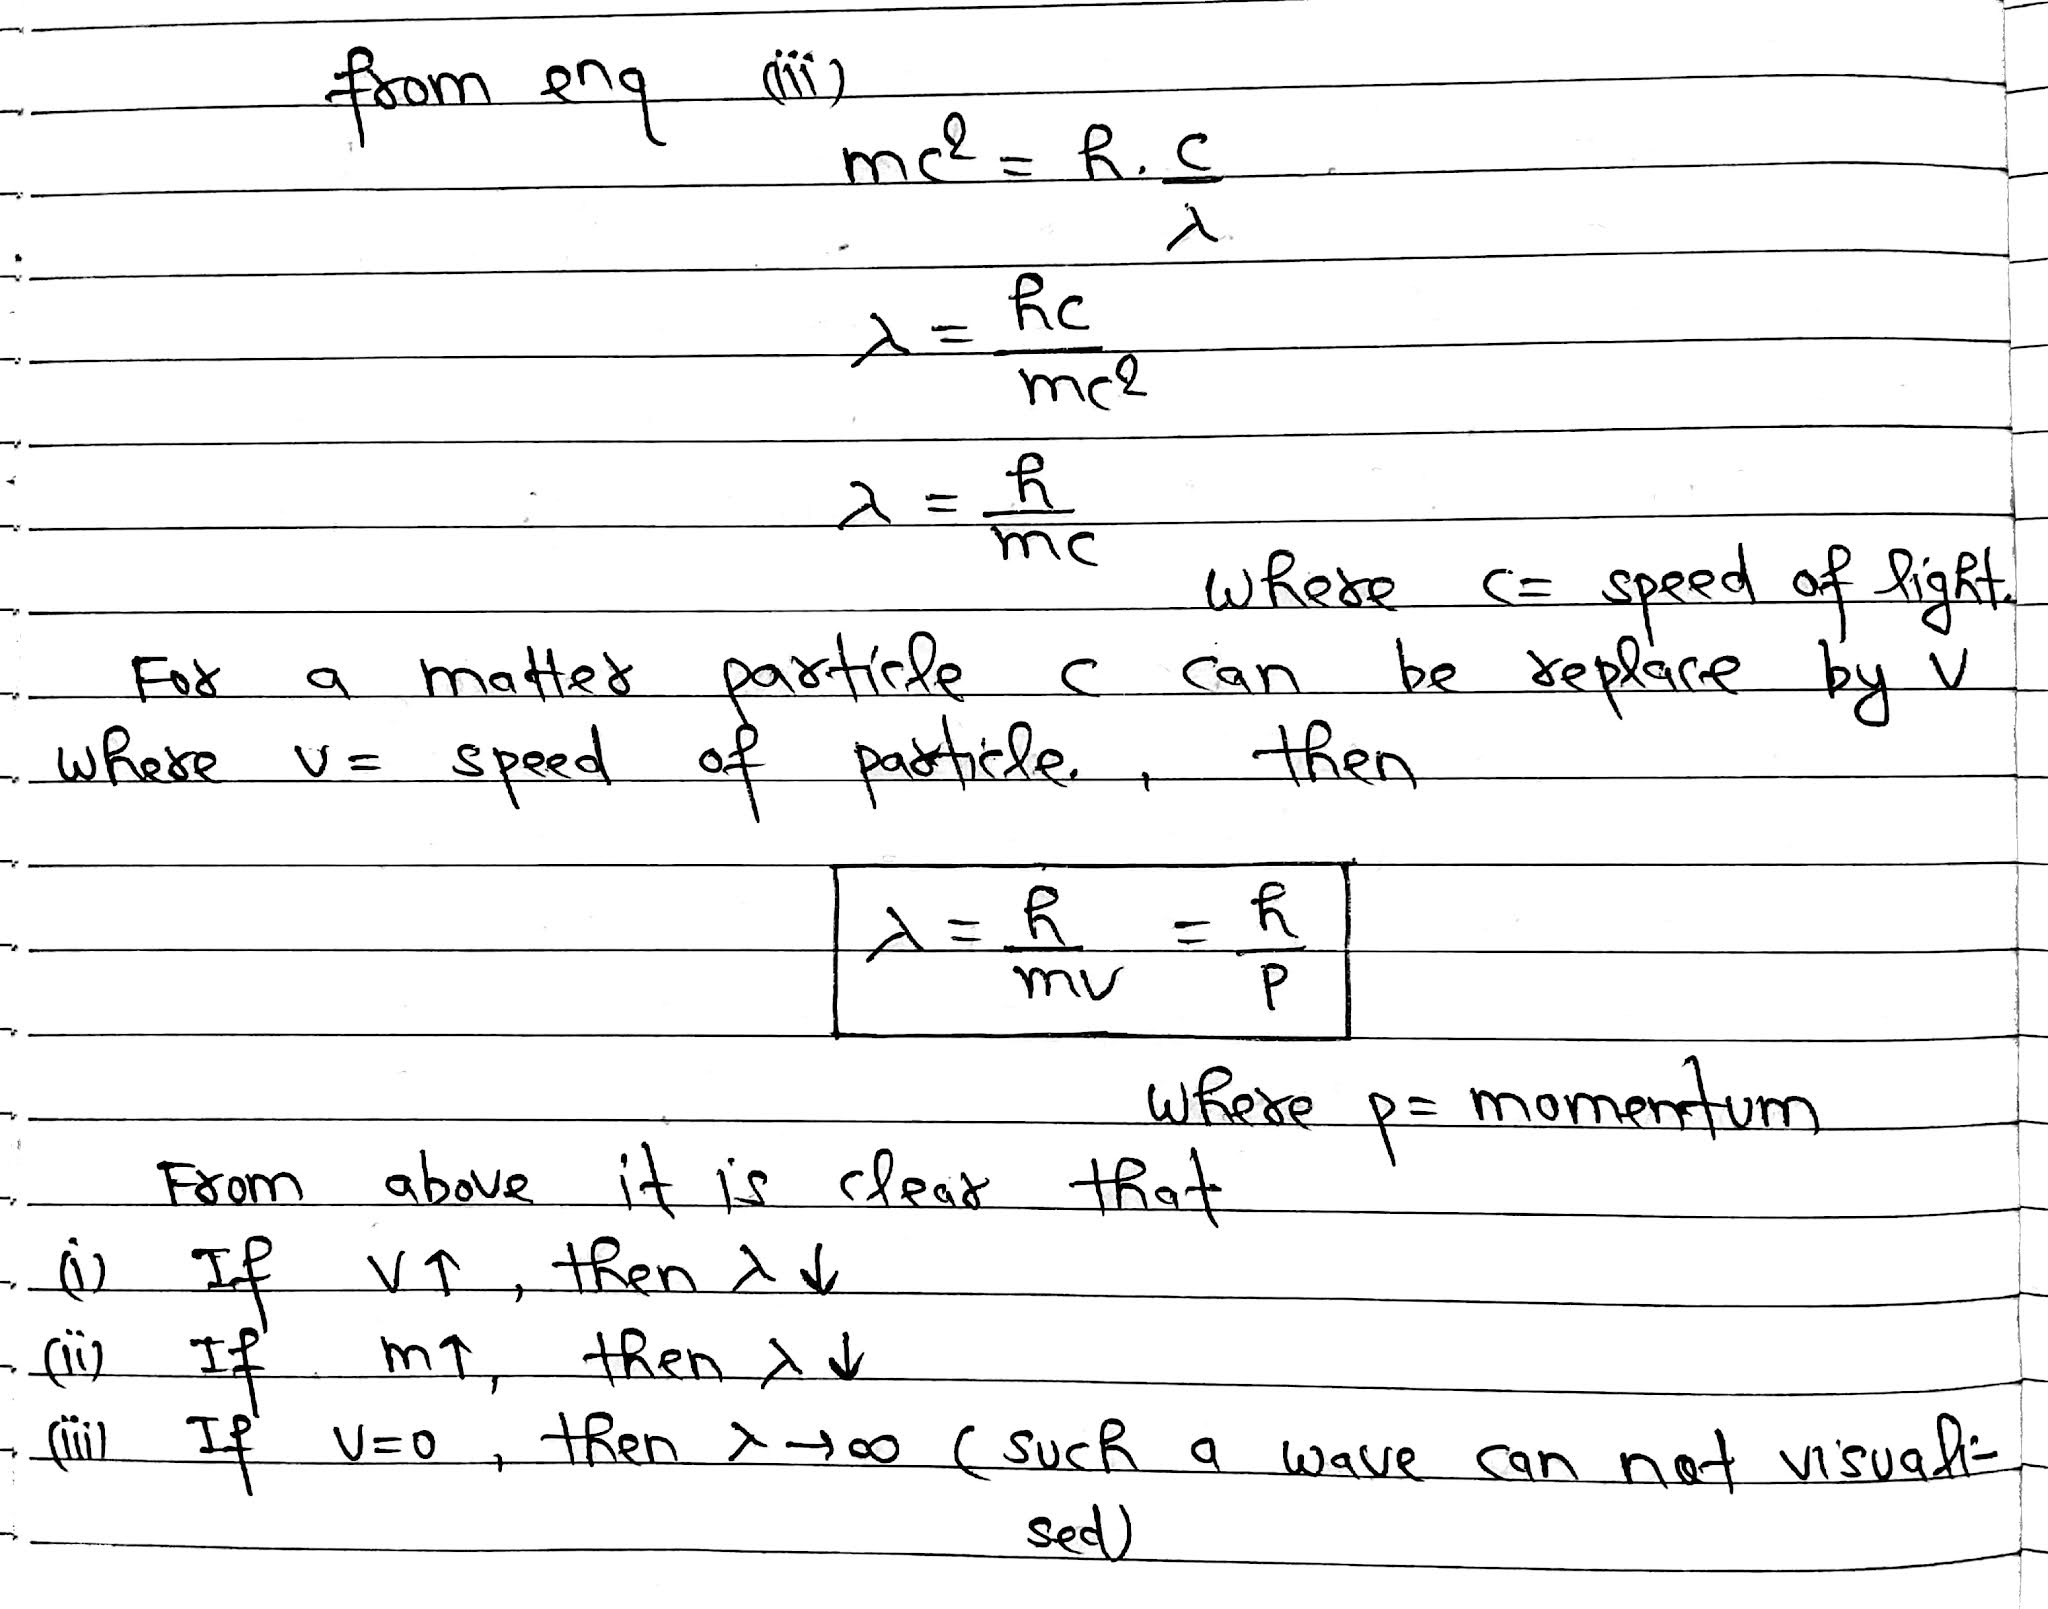 from enq (iii)
mc² = h. c/λ
λ = hc/mc²
λ = h/mc
where c= speed of light.
For a matter particle c can be replace by v
where v= speed of particle. , then
λ = h/mv = h/p
where p= momentum
From above it is clear that
(i) If v↑ , then λ↓
(ii) If m↑, then λ↓
(iii) If v=0 , then λ→∞ (such a wave can not visuali-
sed)